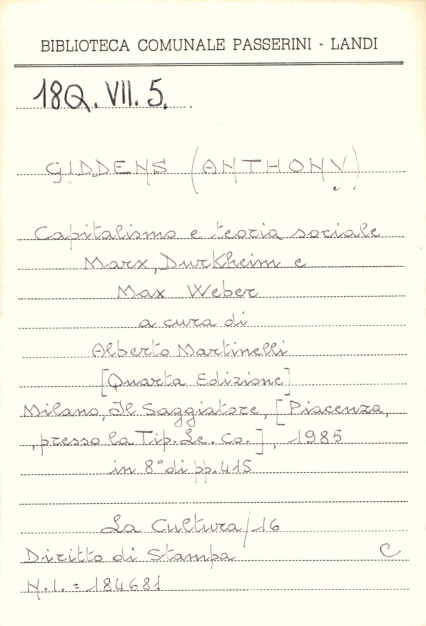 BIBLIOTECA COMUNALE PASSERINI - LANDI
18Q. VII. 5.
GIDDENS (ANTHONY)
Capitalismo e teoria sociale
Marx, Durkheim e
Max Weber
a cura di
Alberto Martinelli
[Quarta Edizione]
Milano, Il Saggiatore, [Piacenza,
, presso la Tip. Le. Co.], 1985
in 8° di pp. 415
La Cultura/16
Diritto di Stampa C
N.I. = 184681